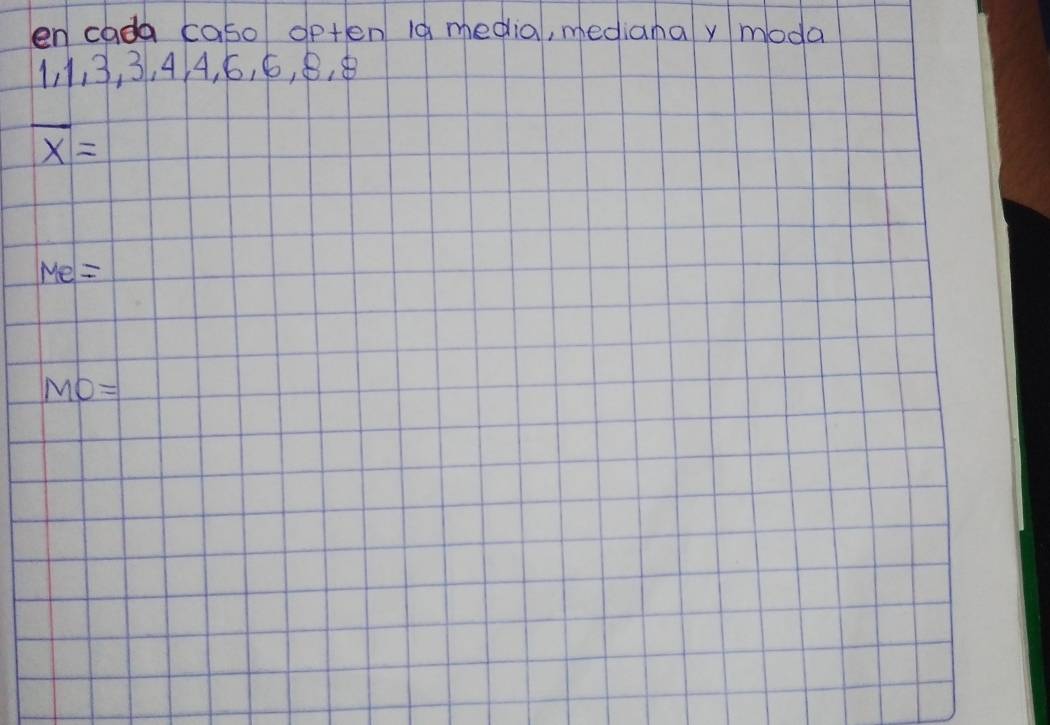 en cada caso opten la media, mediana y moda
1,1,3,3,4,4,6,6,8,8
x̄ =
Me =
MO =